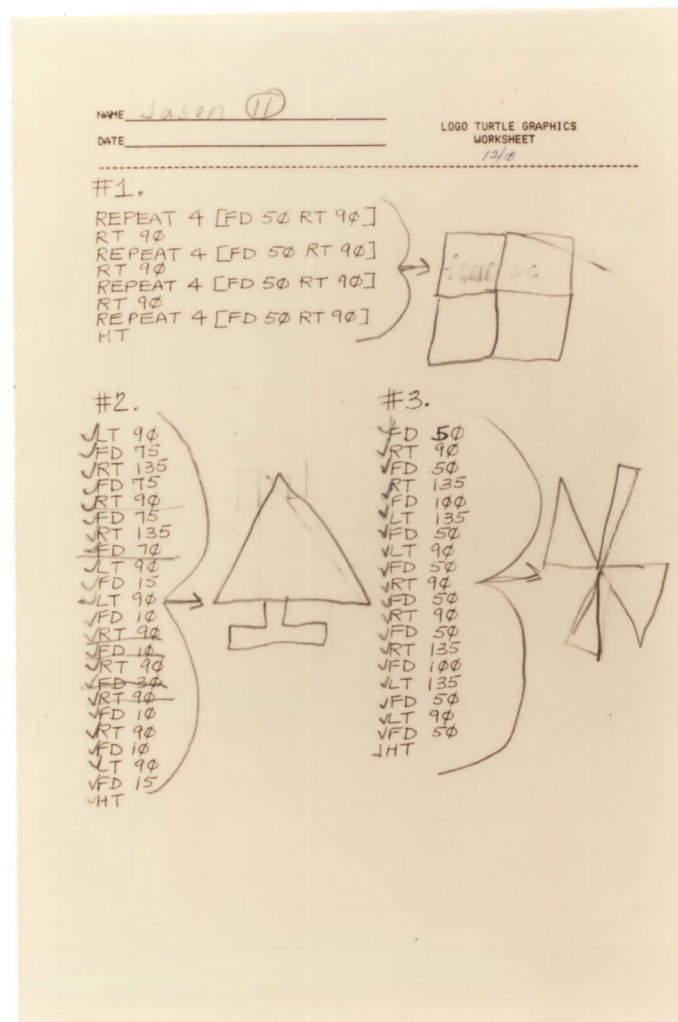 NAME Jason 11
DATE
LOGO TURTLE GRAPHICS
WORKSHEET
12/18
#1.
REPEAT 4 [FD 5Ø RT 9Ø]
RT 9Ø
REPEAT 4 [FD 5Ø RT 9Ø]
RT 9Ø
REPEAT 4 [FD 5Ø RT 9Ø]
RT 9Ø
REPEAT 4 [FD 5Ø RT 9Ø]
HT
four sq
#2.
LT 9Ø
FD 75
RT 135
FD 75
RT 9Ø
FD 75
RT 135
FD 7Ø
LT 9Ø
FD 15
LT 9Ø
FD 1Ø
RT 9Ø
FD 1Ø
RT 9Ø
FD 3Ø
RT 9Ø
FD 1Ø
RT 9Ø
FD 1Ø
LT 9Ø
FD 15
HT
#3.
FD 5Ø
RT 9Ø
FD 5Ø
RT 135
FD 1ØØ
LT 135
FD 5Ø
LT 9Ø
FD 5Ø
RT 9Ø
FD 5Ø
RT 9Ø
FD 5Ø
RT 135
FD 1ØØ
LT 135
FD 5Ø
LT 9Ø
FD 5Ø
HT